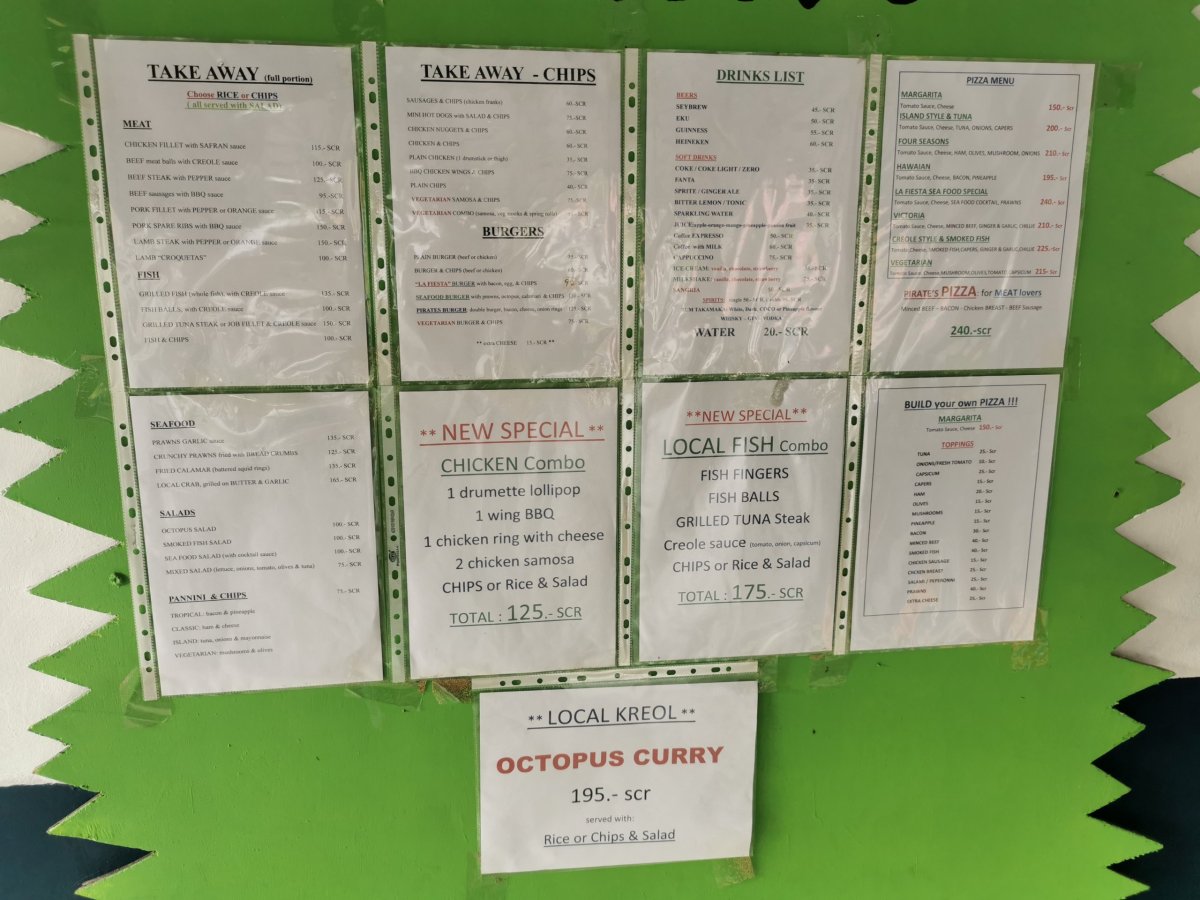 TAKE AWAY (full portion)
Choose RICE or CHIPS
( all served with SALAD)
MEAT
CHICKEN FILLET with SAFRAN sauce 115.-SCR
BEEF meat balls with CREOLE sauce 100.-SCR
BEEF STEAK with PEPPER sauce 125.-SCR
BEEF sausages with BBQ sauce 95.-SCR
PORK FILLET with PEPPER or ORANGE sauce
PORK SPARE RIBS with BBQ sauce 150.-SCR
LAMB STEAK with PEPPER or ORANGE sauce 150.-SCR
LAMB "CROQUETAS" 100.-SCR
FISH
GRILLED FISH (whole fish), with CREOLE sauce 135.-SCR
FISH BALLS, with CREOLE sauce 100.-SCR
GRILLED TUNA STEAK or JOB FILLET & CREOLE sauce 150.-SCR
FISH & CHIPS 100.-SCR
SEAFOOD
PRAWNS GARLIC sauce 135.-SCR
CRUNCHY PRAWNS fried with BREAD CRUMBS 125.-SCR
FRIED CALAMAR (battered squid rings) 135.-SCR
LOCAL CRAB, grilled on BUTTER & GARLIC 165.-SCR
SALADS
OCTOPUS SALAD 100.-SCR
SMOKED FISH SALAD 100.-SCR
SEA FOOD SALAD (with cocktail sauce) 100.-SCR
MIXED SALAD (lettuce, onions, tomato, olives & tuna) 75.-SCR
PANNINI & CHIPS 75.-SCR
TROPICAL: bacon & pineapple
CLASSIC: ham & cheese
ISLAND: tuna, onions & mayonnaise
VEGETARIAN: mushrooms & olives
TAKE AWAY - CHIPS
SAUSAGES & CHIPS (chicken franks) 60.-SCR
MINI HOT DOGS with SALAD & CHIPS 75.-SCR
CHICKEN NUGGETS & CHIPS 60.-SCR
CHICKEN & CHIPS 60.-SCR
PLAIN CHICKEN (1 drumstick or thigh)
BBQ CHICKEN WINGS & CHIPS 75.-SCR
PLAIN CHIPS 40.-SCR
VEGETARIAN SAMOSA & CHIPS 75.-SCR
VEGETARIAN COMBO (samosa, veg rings & spring rolls)
BURGERS
PLAIN BURGER (beef or chicken)
BURGER & CHIPS (beef or chicken)
"LA FIESTA" BURGER with bacon, egg, & CHIPS
SEAFOOD BURGER with prawns, octopus, calamari & CHIPS
PIRATES BURGER double burger, bacon, cheese, onion rings
VEGETARIAN BURGER & CHIPS 75.-SCR
** extra CHEESE 15.-SCR **
** NEW SPECIAL **
CHICKEN Combo
1 drumette lollipop
1 wing BBQ
1 chicken ring with cheese
2 chicken samosa
CHIPS or Rice & Salad
TOTAL : 125.- SCR
DRINKS LIST
BEERS
SEYBREW 45.- SCR
EKU 50.- SCR
GUINNESS 55.- SCR
HEINEKEN 60.- SCR
SOFT DRINKS
COKE / COKE LIGHT / ZERO 35.- SCR
FANTA 35.- SCR
SPRITE / GINGER ALE 35.- SCR
BITTER LEMON / TONIC 35.- SCR
SPARKLING WATER 40.- SCR
JUICE apple-orange-mango-pineapple-passion fruit 35.- SCR
Coffee EXPRESSO 50.-SCR
Coffee with MILK 60.- SCR
CAPPUCCINO 75.- SCR
ICE CREAM: vanilla, chocolate, strawberry
MILKSHAKE: vanilla, chocolate, strawberry 75.-SCR
SANGRIA
SPIRITS:
RUM TAKAMAKA: White, Dark, COCO or Pineapple flavour
WHISKY - GIN - VODKA
WATER 20.- SCR
**NEW SPECIAL**
LOCAL FISH Combo
FISH FINGERS
FISH BALLS
GRILLED TUNA Steak
Creole sauce (tomato, onion, capsicum)
CHIPS or Rice & Salad
TOTAL : 175.- SCR
PIZZA MENU
MARGARITA
Tomato Sauce, Cheese 150.- Scr
ISLAND STYLE & TUNA
Tomato Sauce, Cheese, TUNA, ONIONS, CAPERS 200.- Scr
FOUR SEASONS
Tomato Sauce, Cheese, HAM, OLIVES, MUSHROOM, ONIONS 210.- Scr
HAWAIIAN
Tomato Sauce, Cheese, BACON, PINEAPPLE 195.- Scr
LA FIESTA SEA FOOD SPECIAL
Tomato Sauce, Cheese, SEA FOOD COCKTAIL, PRAWNS 240.- Scr
VICTORIA
Tomato Sauce, Cheese, MINCED BEEF, GINGER & GARLIC, CHILLIE 210.- Scr
CREOLE STYLE & SMOKED FISH
Tomato Cheese, SMOKED FISH, CAPERS, GINGER & GARLIC, CHILLIE 225.-Scr
VEGETARIAN
Tomato Sauce, Cheese, MUSHROOM, OLIVES, TOMATO, CAPSICUM 215- Scr
PIRATE'S PIZZA: for MEAT lovers
Minced BEEF – BACON - Chicken BREAST – BEEF Sausage
240.-scr
BUILD your own PIZZA !!!
MARGARITA
Tomato Sauce, Cheese 150.- Scr
TOPPINGS
TUNA 25.- Scr
ONIONS/FRESH TOMATO 10.- Scr
CAPSICUM 25.- Scr
CAPERS 15.- Scr
HAM 20.- Scr
OLIVES 15.- Scr
MUSHROOMS 15.- Scr
PINEAPPLE 15.- Scr
BACON 30.- Scr
MINCED BEEF 40.- Scr
SMOKED FISH 40.- Scr
CHICKEN SAUSAGE 15.- Scr
CHICKEN BREAST 25.- Scr
SALAMI / PEPERONNI 25.- Scr
PRAWNS 40.- Scr
EXTRA CHEESE 25.- Scr
** LOCAL KREOL **
OCTOPUS CURRY
195.- scr
served with:
Rice or Chips & Salad